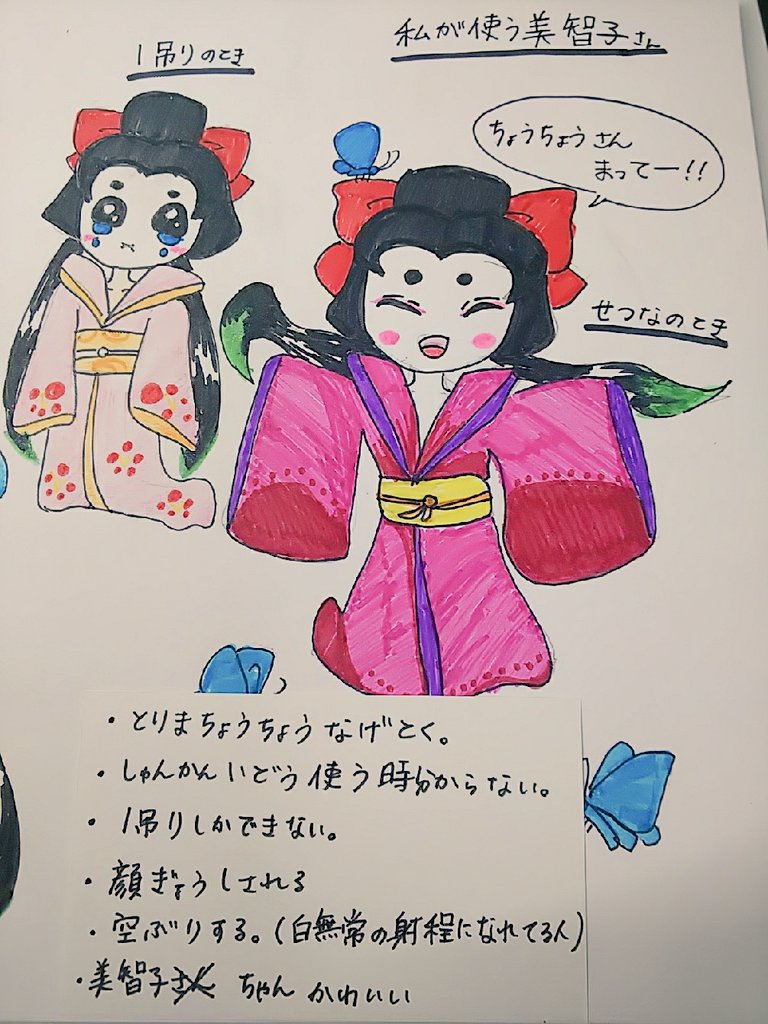 1吊りのとき
私が使う美智子さん
ちょうちょうさん
まってー!!
せつなのとき
・とりまちょうちょうなげとく。
・しゅんかんいどう使う時分からない。
・1吊りしかできない。
・顔ぎょうしされる
・空ぶりする。(白無常の射程になれてる人)
・美智子さん ちゃん かわいい